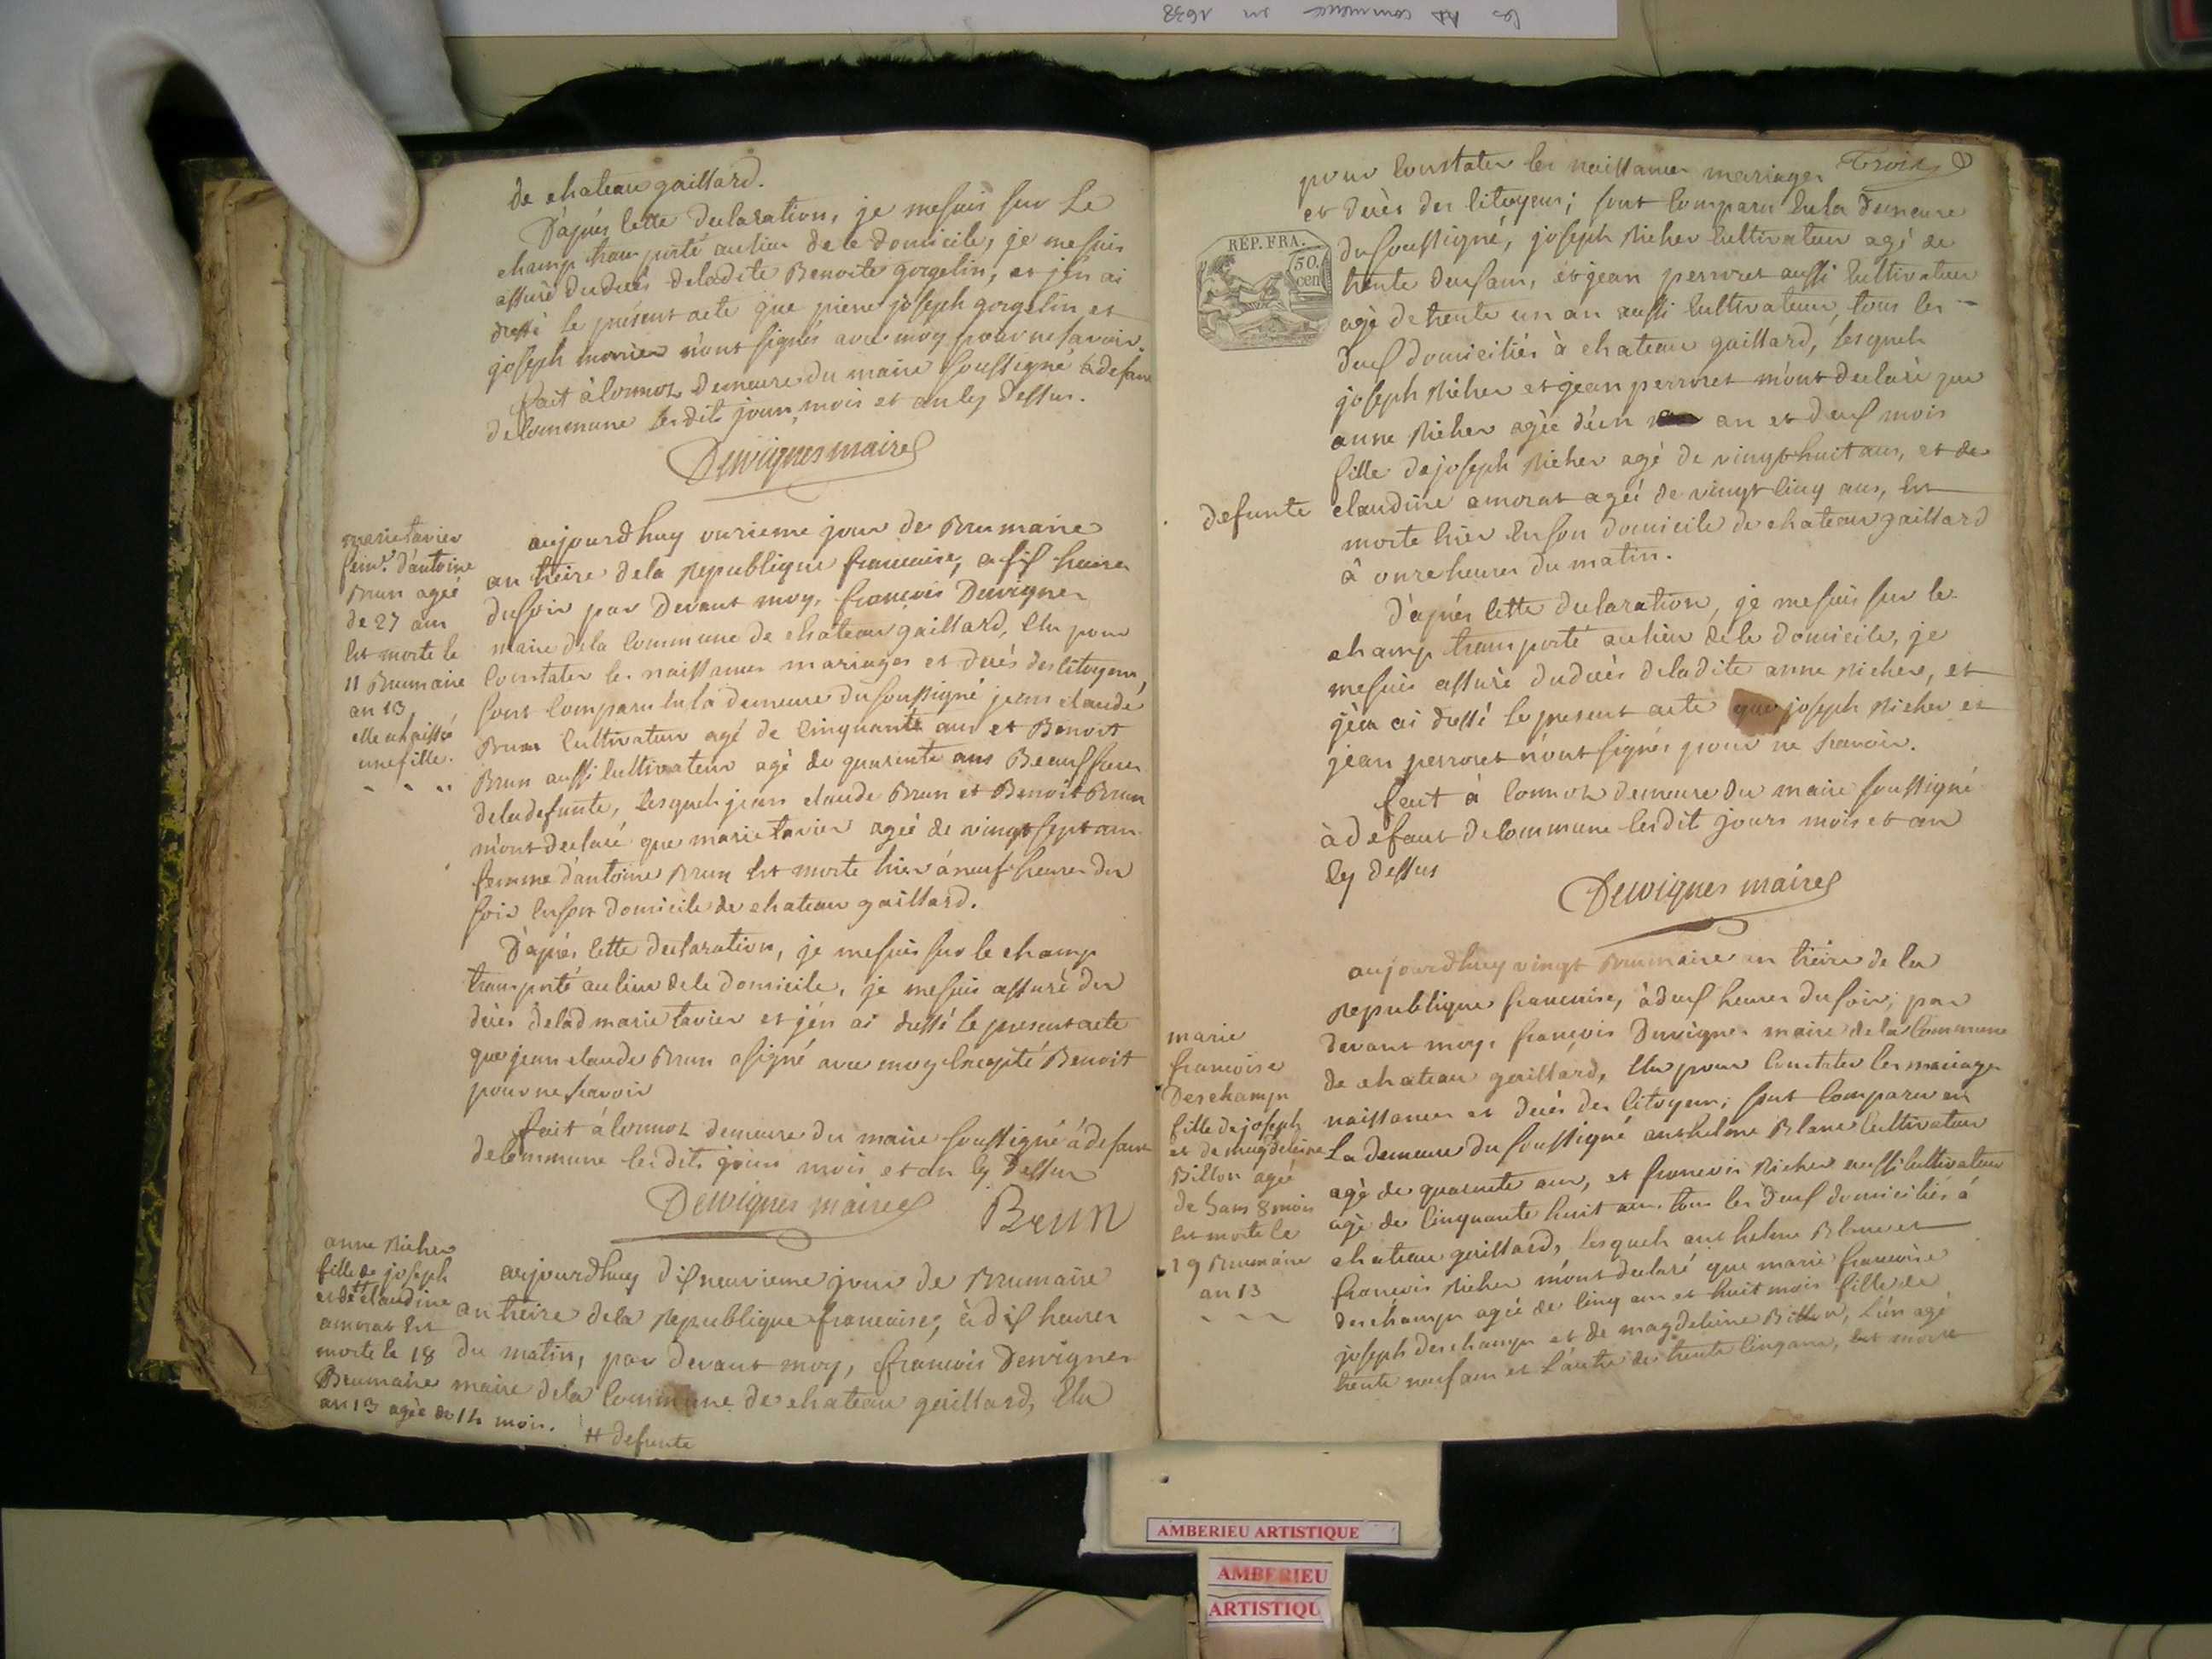 les commence en 1638
de chateau gaillard.
D'après cette declaration, je mesuis sur Le
champ transporté aulieu de ce domicile, je mesuis
assuré dudecés deladite Benoite gorgelin, et j'en ai
dressé le présent acte que pierre joseph gorgelin et
joseph n'ont signés avec moy pour nesavoir.
fait à Cormoz demeure du maire soussigné à defaut
decommune lesdits jours, mois et an cy dessus.
Dervignes maire
marie tavier
fem.e d'antoine
Brun agée
de 27 ans
est morte le
11 Brumaire
an 13
elle a laissé
une fille.
aujourdhuy onzieme jour de Brumaire
an treize dela Republique francaise, a six heures
dusoir par devant moy, francois Dervignes
maire dela commune de chateau gaillard, elu pour
constater les naissances mariages et decés des citoyens,
sont comparu en la demeure du soussigné jean claude
Brun cultivateur agé de cinquante ans et Benoit
Brun aussi cultivateur agé de quarente ans Beauf freres
deladefunte, lesquels jean claude Brun et Benoit Brun
m'ont declaré que marie tavier ageé de vingt sept ans
femme d'antoine Brun est morte hier à neuf heures du
soir en son domicile de chateau gaillard.
D'après cette declaration, je mesuis sur le champ
transporté aulieu dece domicile, je mesuis assuré du
décès delad marie tavier et j'en ai dressé le present acte
que jean claude Brun a signé avec moy excepté Benoit
pour ne savoir
fait à Cormoz demeure du maire soussigné à defaut
decommune lesdits jours mois et an cy dessus
Dervignes maire
Brun
anne Richer
fille de joseph
et de # claudine
amorat est
morte le 18
Brumaire
an 13 agée de 14 mois.
aujourdhuy dixneuvieme jour de Brumaire
an treize dela Republique francaise, à dix heures
du matin, par devant moy, francois Dervignes
maire dela commune de chateau gaillard, Elu
# defunte
Trois
pour constater les naissances mariages
et decès des citoyens; sont comparu en la demeure
REP. FRA.
50.
cen
du soussigné, joseph Richer cultivateur agé de
trente deux ans, et jean perroret aussi cultivateur
agé de trente un an aussi cultivateur, tous les
deux domiciliés à chateau gaillard, lesquels
joseph Richer et jean perroret m'ont declaré que
anne Richer agée d'un an et deux mois
fille de joseph Richer agé de vingt huit ans, et de
defunte claudine amorat ageé de vingt cinq ans, est
morte hier en son domicile de chateau gaillard
à onze heures du matin.
D'après cette declaration, je mesuis sur le
champ transporté aulieu dece domicile, je
mesuis assuré dudecès deladite anne Richer, et
j'en ai dressé le present acte que joseph Richer et
jean perroret n'ont signés pour ne savoir.
fait à Cormoz demeure du maire soussigné
à defaut decommune lesdits jours mois et an
cy dessus
Dervignes maire
marie
francoise
Deschamps
fille de joseph
et de magdeleine
Billon agé
de 5 ans 8 mois
est morte le
19 Brumaire
an 13
aujourdhuy vingt Brumaire an treize de la
Republique francaise, à deux heures du soir, par
devant moy, francois Dervignes maire de la commune
de chateau gaillard, Elu pour constater les mariages
naissances et decès des citoyens; sont comparu en
La demeure du soussigné anthelme Blanc cultivateur
agé de quarente ans, et francois Richer aussi cultivateur
agé de cinquante huit ans, tous les deux domiciliés à
chateau gaillard, lesquels anthelme Blanc et
francois Richer m'ont declaré que marie francoise
deschamps agée de cinq ans et huit mois fille de
joseph deschamps et de magdeleine Billon, l'un agé
trente neuf ans et l'autre de trente cinq ans, est morte
AMBERIEU ARTISTIQUE
AMBERIEU
ARTISTIQU